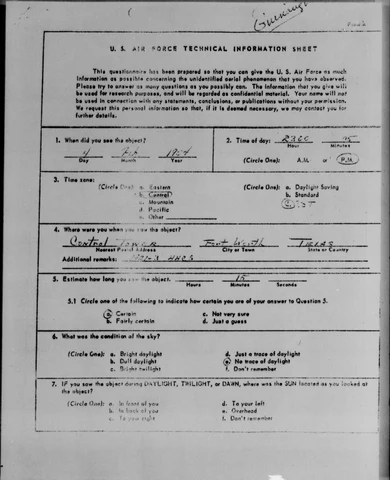 U. S. AIR FORCE TECHNICAL INFORMATION SHEET
This questionnaire has been prepared so that you can give the U. S. Air Force as much
information as possible concerning the unidentified aerial phenomenon that you have observed.
Please try to answer as many questions as you possibly can. The information that you give will
be used for research purposes, and will be regarded as confidential material. Your name will not
be used in connection with any statements, conclusions, or publications without your permission.
We request this personal information so that, if it is deemed necessary, we may contact you for
further details.
1. When did you see the object?
4 1954
Day Month Year
2. Time of day:
Hour Minutes
(Circle One): A.M. or P.M.
3. Time zone:
(Circle One): a. Eastern
b. Central
c. Mountain
d. Pacific
e. Other
(Circle One): a. Daylight Saving
b. Standard
4. Where were you when you saw the object?
Control Tower Fort Worth Texas
Nearest Postal Address City or Town State or Country
Additional remarks:
5. Estimate how long you saw the object. 15
Hours Minutes Seconds
5.1 Circle one of the following to indicate how certain you are of your answer to Question 5.
a. Certain
b. Fairly certain
c. Not very sure
d. Just a guess
6. What was the condition of the sky?
(Circle One): a. Bright daylight
b. Dull daylight
c. Bright twilight
d. Just a trace of daylight
e. No trace of daylight
f. Don't remember
7. IF you saw the object during DAYLIGHT, TWILIGHT, or DAWN, where was the SUN located as you looked at
the object?
(Circle One): a. In front of you
b. In back of you
c. To your right
d. To your left
e. Overhead
f. Don't remember